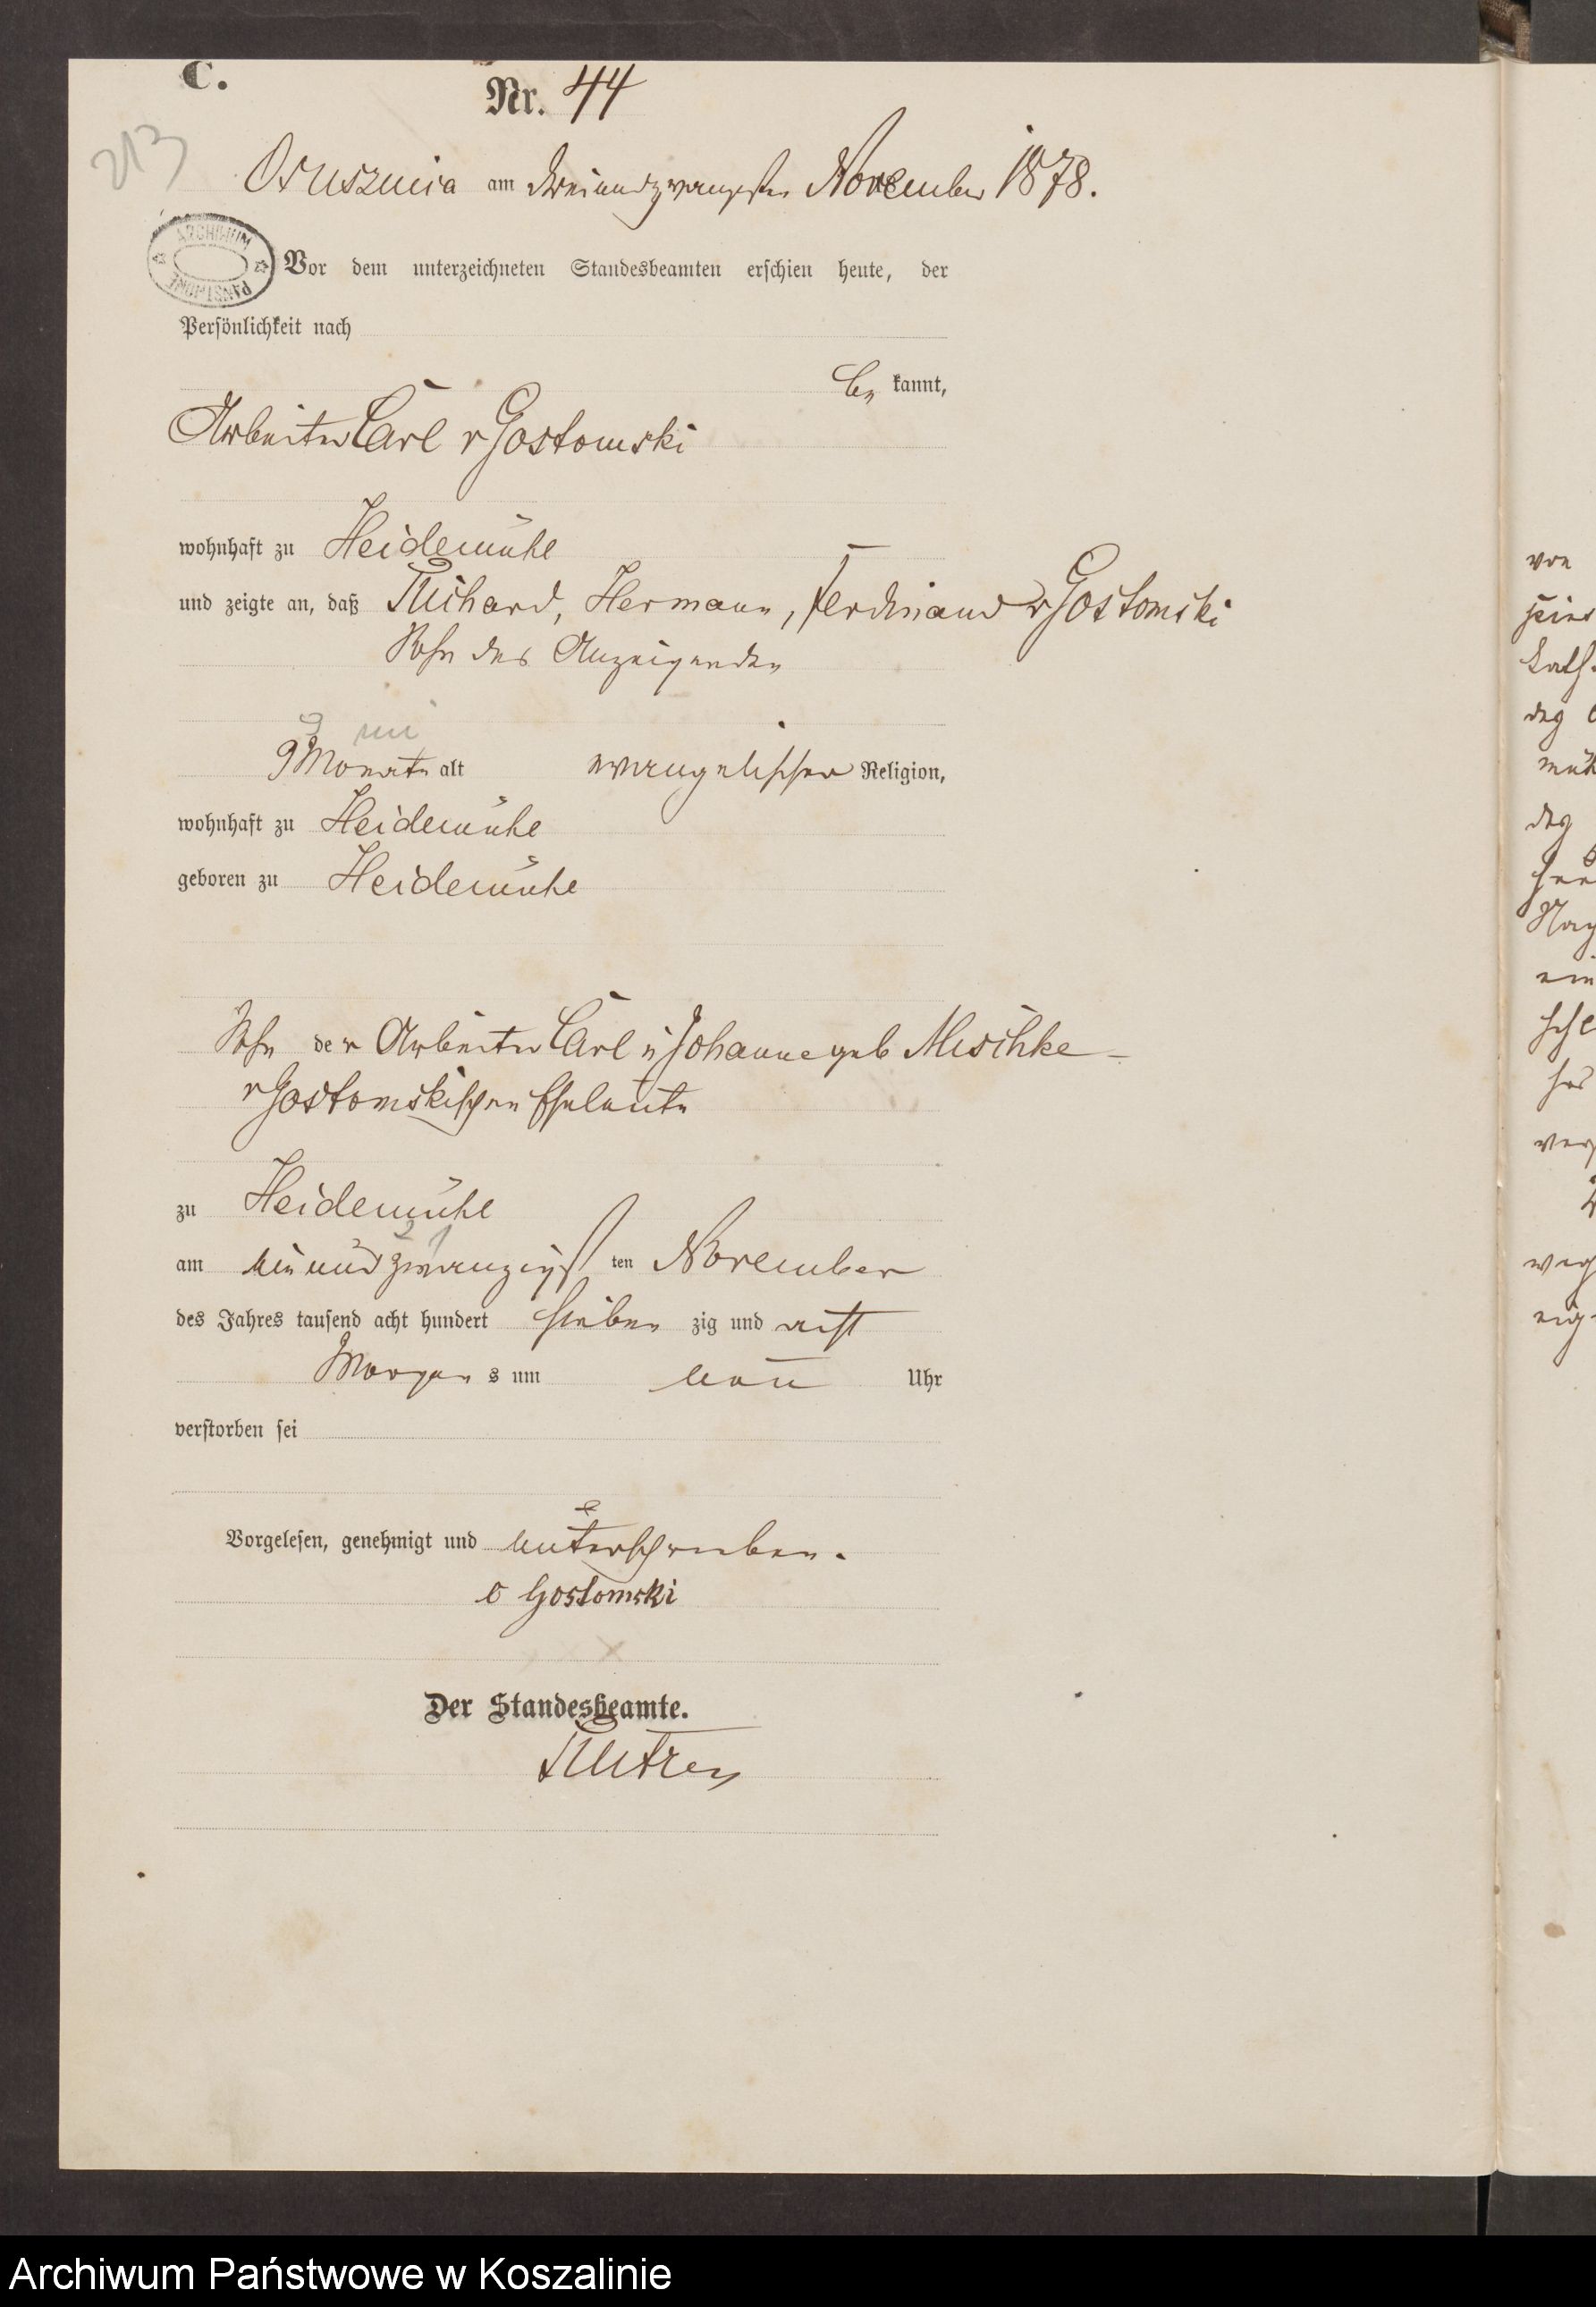 C.
Nr. 44
213
Ossusznica am Dreiundzwanzigsten November 1878.
ARCHIWUM PAŃSTWOWE
Vor dem unterzeichneten Standesbeamten erschien heute, der
Persönlichkeit nach
be kannt,
Arbeiter Carl v Gostomski
wohnhaft zu Heidemühl
und zeigte an, daß Richard, Hermann, Ferdinand v Gostomski
Sohn des Anzeigenden
9 Monate alt evangelischer Religion,
wohnhaft zu Heidemühl
geboren zu Heidemühl
Sohn der Arbeiter Carl u Johanne geb Mischke
v Gostomskischen Eheleute
zu Heidemühl
am einundzwanzigsten November
des Jahres tausend acht hundert sieben zig und acht
Morgen s um neun Uhr
verstorben sei
Vorgelesen, genehmigt und unterschrieben.
Gostomski
Der Standesbeamte.
von
kath.
ein
Archiwum Państwowe w Koszalinie